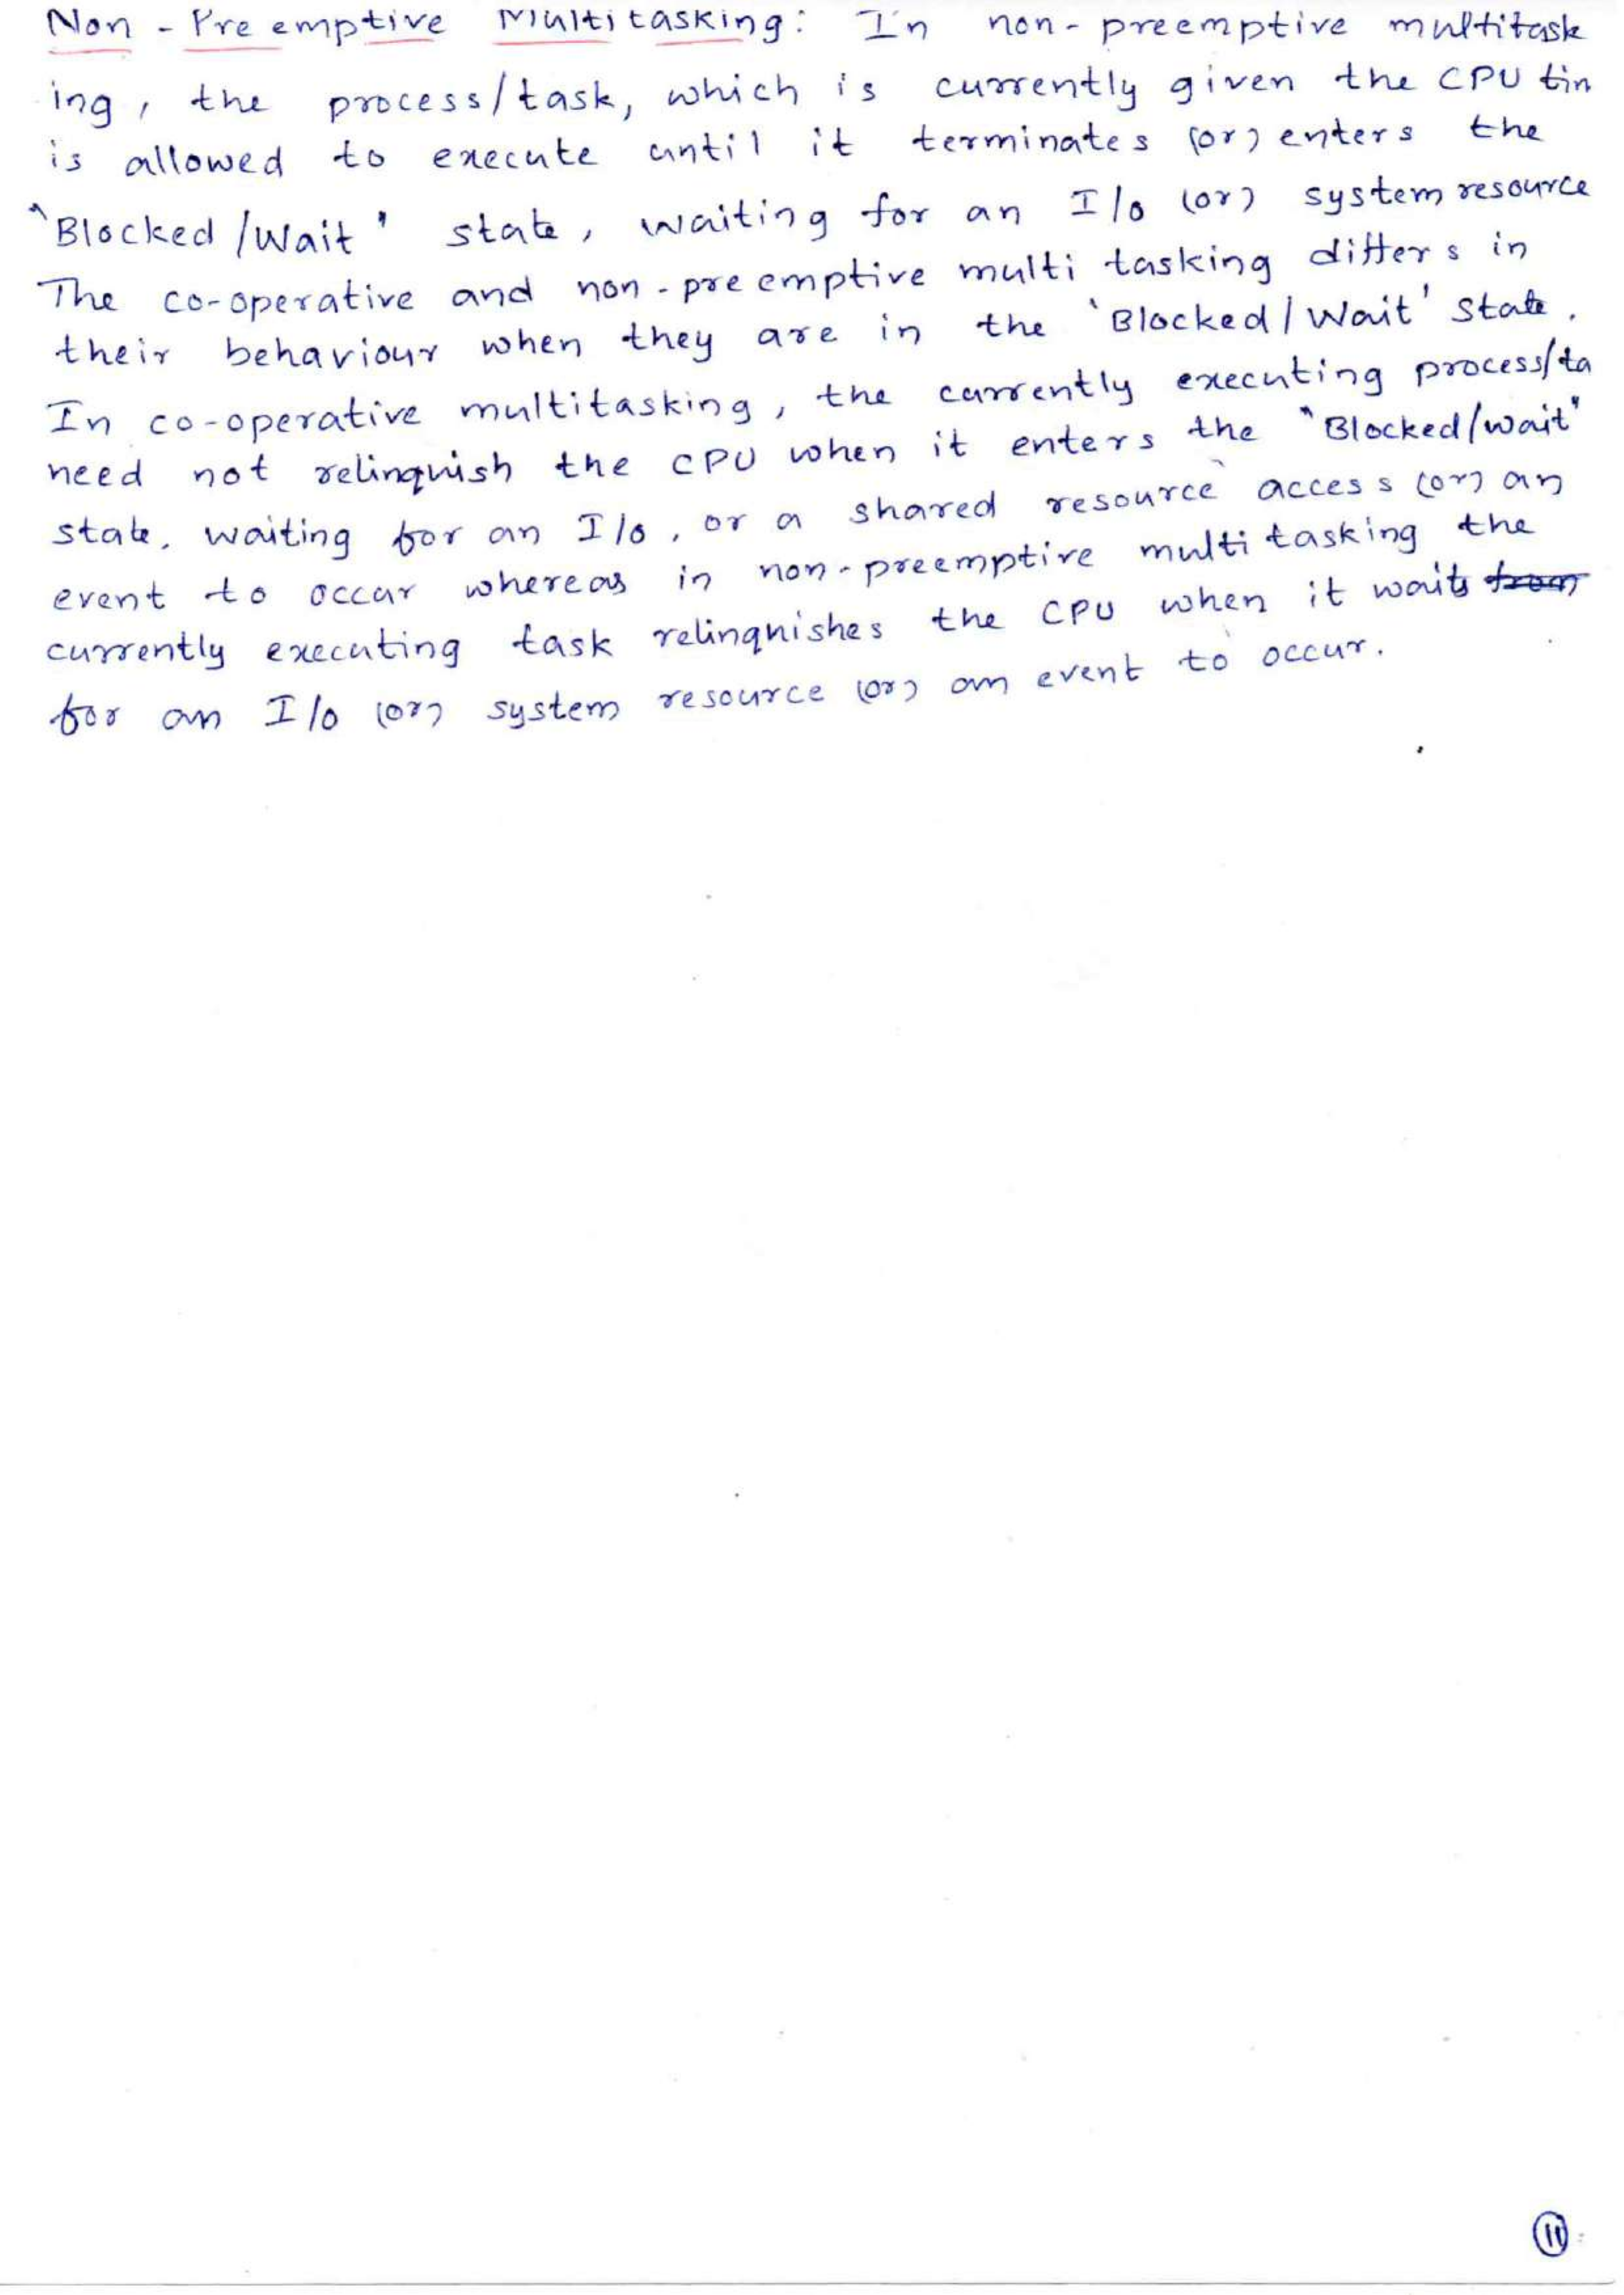 Non - Pre emptive Multi tasking: In non- preemptive multitask
ing, the process/task, which is currently given the CPU tim
is allowed to execute until it terminates (or) enters the
"Blocked/Wait" state, waiting for an I/O (or) system resource
The co-operative and non-pre emptive multi tasking differs in
their behaviour when they are in the 'Blocked/Wait' state.
In co-operative multitasking, the currently executing process/ta
need not relinquish the CPU when it enters the "Blocked/wait"
state, waiting for an I/O, or a shared resource access (or) an
event to occur whereas in non-preemptive multi tasking the
currently executing task relinquishes the CPU when it waits from
for an I/O (or) system resource (or) an event to occur.
11